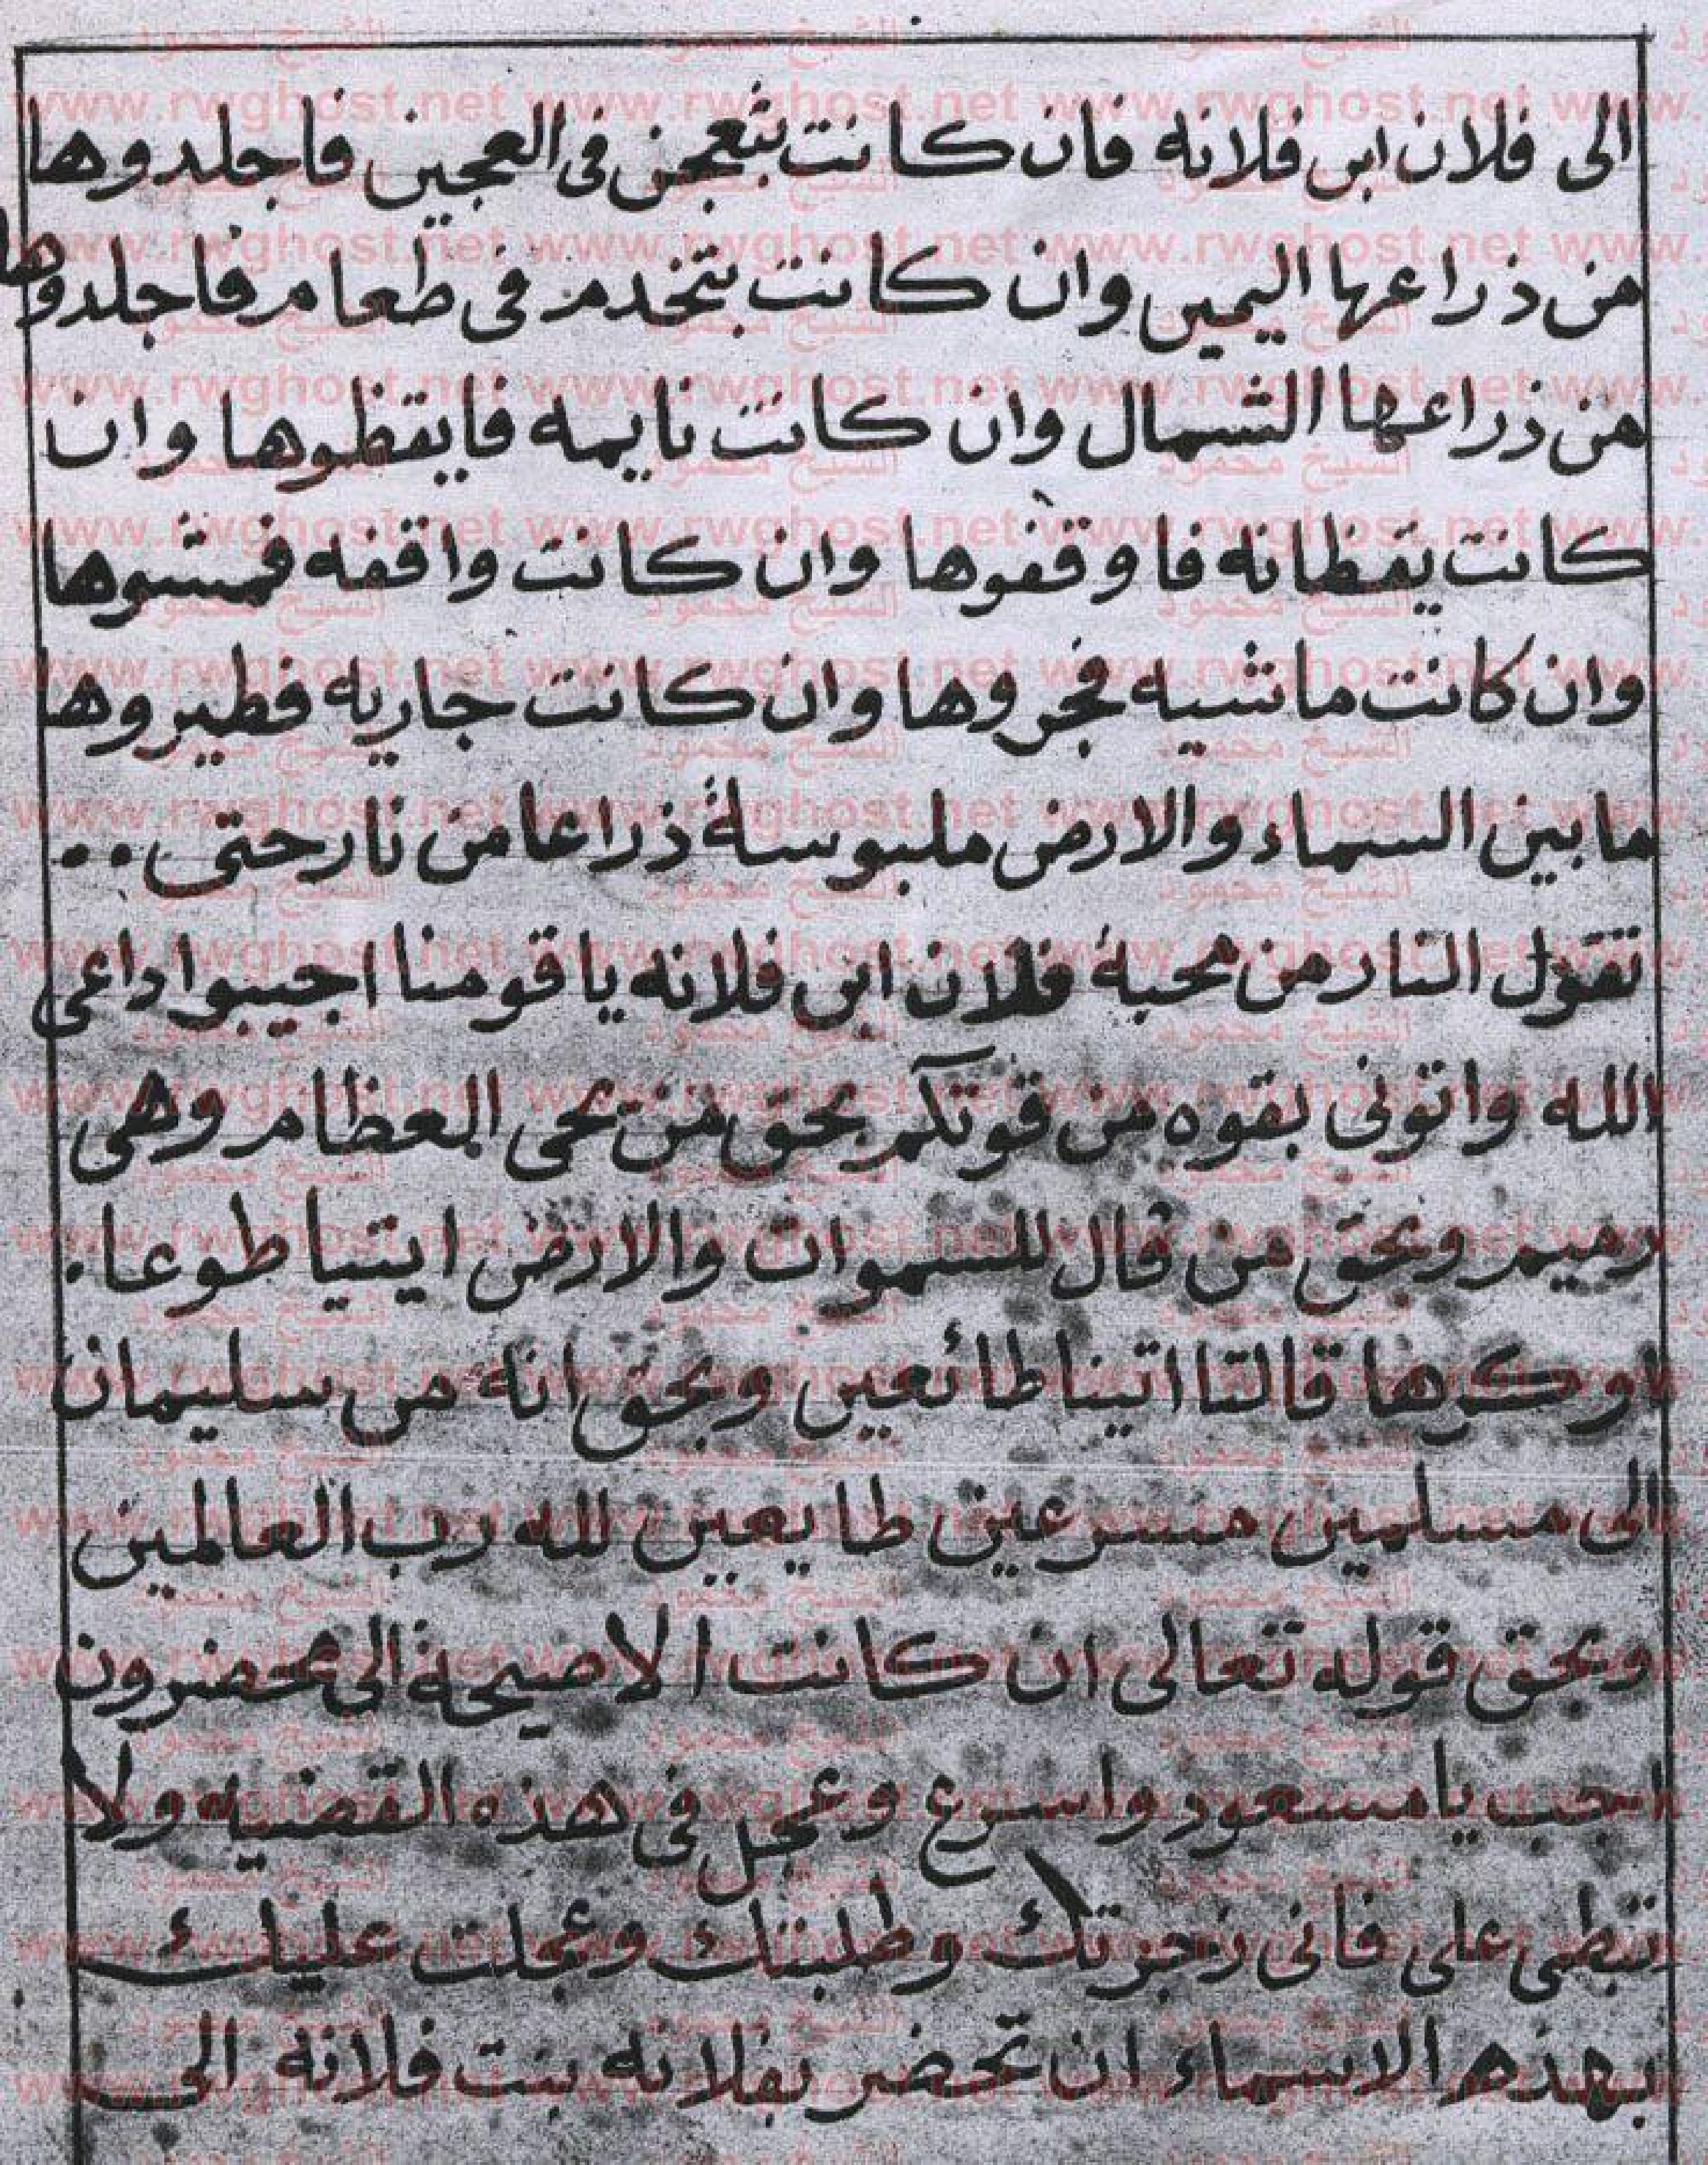 الى فلان ابن فلانه فان كانت بتعجن فى العجين فاجلدوها
من ذراعها اليمين وان كانت بتخدم فى طعام فاجلدوها
من ذراعها الشمال وان كانت نايمه فايقظوها وان
كانت يقظانه فاوقفوها وان كانت واقفه فمشوها
وان كانت ماشيه فجروها وان كانت جاريه فطيروها
ما بين السماء والارض ملبوسة ذراعا من نار حتى ..
تقول النار من محبة فلان ابن فلانه ياقومنا اجيبوا داعى
الله واتونى بقوه من قوتكم بحق من يحى العظام وهى
رميم وبحق من قال للسموات والارض ايتيا طوعا.
اوكرها قالتا اتينا طائعين وبحق انه من سليمان
الى مسلمين مسرعين طايعين لله رب العالمين
وبحق قوله تعالى ان كانت الاصيحة الى محضرون
اجب يا مسعود واسرع وعجل فى هذه القضيه ولا
تبطى على فانى زجرتك وطلبتك وعجلت عليك
بهذه الاسماء ان تحضر بفلانه بنت فلانة الى
www.rwghost.net
الشيخ محمود